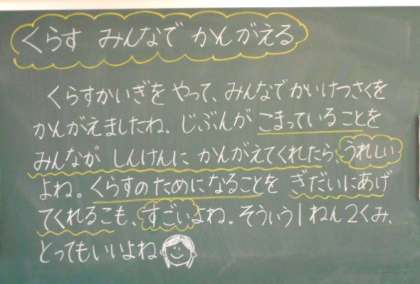 くらす みんなで かんがえる
くらすかいぎを やって、みんなでかいけつさくを
かんがえましたね。じぶんが こまっていることを
みんなが しんけんに かんがえてくれたら、うれしい
よね。くらすのためになることを ぎだいにあげ
てくれるこも、すごいよね。そういう1ねん2くみ、
とってもいいよね